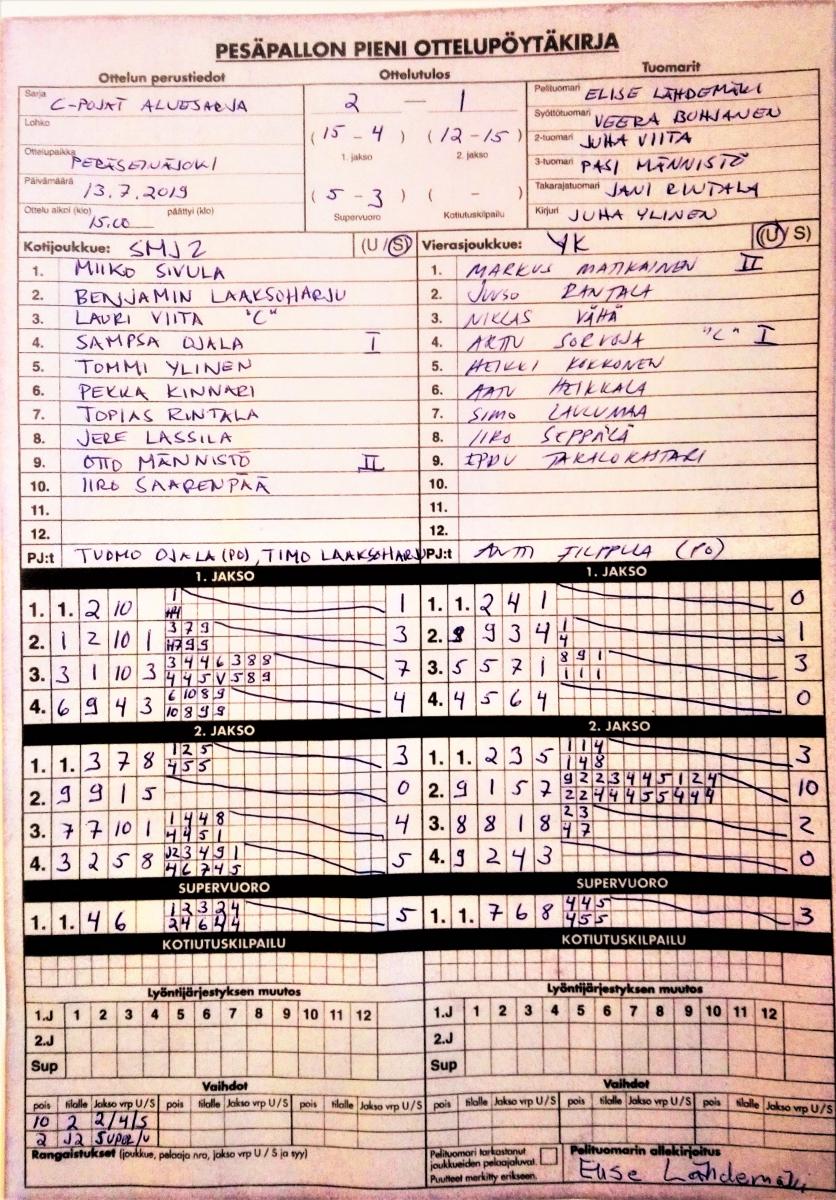 PESÄPALLON PIENI OTTELUPÖYTÄKIRJA
Ottelun perustiedot Ottelutulos Tuomarit
Sarja C-POJAT ALUESARJA 2 — 1 Pelituomari ELISE LÄHDEMÄKI
Lohko Syöttötuomari VEERA
(15 - 4) (12 - 15) 2-tuomari JUHA VIITA
Ottelupaikka PERÄSEINÄJOKI 1. jakso 2. jakso 3-tuomari PASI MÄNNISTÖ
Päivämäärä 13.7.2019 (5 - 3) ( - ) Takarajatuomari JANI RINTALA
Ottelu alkoi (klo) 15.00 päättyi (klo) Supervuoro Kotiutuskilpailu Kirjuri JUHA YLINEN
Kotijoukkue: SMJ2 (U / S) Vierasjoukkue: YK (U / S)
1. MIIKO SIVULA 1. MARKUS MATIKAINEN II
2. BENJAMIN LAAKSOHARJU 2. JUUSO RANTALA
3. LAURI VIITA "C" 3. NIKLAS VÄHÄ
4. SAMPSA OJALA I 4. ARTTU SORVOJA "C" I
5. TOMMI YLINEN 5. HEIKKI KOKKONEN
6. PEKKA KINNARI 6. AATU HEIKKALA
7. TOPIAS RINTALA 7. SIMO LAULUMAA
8. JERE LASSILA 8. IIRO SEPPÄLÄ
9. OTTO MÄNNISTÖ II 9. EPPU
10. IIRO SAARENPÄÄ 10.
11. 11.
12. 12.
PJ:t TUOMO OJALA (PO), TIMO LAAKSOHARJU PJ:t ANTTI (PO)
1. JAKSO 1. JAKSO
1. 1. 2 10 1 1 1. 1. 2 4 1 0
2. 1 2 10 1 3 7 9 3 2. 9 3 4 1 1
4
3. 3 1 10 3 3 4 4 6 3 8 8 7 3. 5 5 7 1 8 9 1 3
4 4 5 V 5 8 9 1 1 1
4. 6 9 4 3 6 10 8 9 4 4. 4 5 6 4 0
10 8 9 9
2. JAKSO 2. JAKSO
1. 1. 3 7 8 1 2 5 3 1. 1. 2 3 5 1 1 4 3
4 5 5 1 4 8
2. 9 9 1 5 0 2. 9 1 5 7 9 2 2 3 4 4 5 1 2 4 10
2 2 4 4 4 5 5 4 4 4
3. 7 7 10 1 1 4 4 8 4 3. 8 8 1 8 2 3 2
4 4 5 1 4 7
4. 3 2 5 8 J2 3 4 9 1 5 4. 9 2 4 3 0
4 6 7 4 5
SUPERVUORO SUPERVUORO
1. 1. 4 6 1 2 3 2 4 5 1. 1. 7 6 8 4 4 5 3
2 4 6 4 4 4 5 5
KOTIUTUSKILPAILU KOTIUTUSKILPAILU
Lyöntijärjestyksen muutos Lyöntijärjestyksen muutos
1.J 1 2 3 4 5 6 7 8 9 10 11 12 1.J 1 2 3 4 5 6 7 8 9 10 11 12
2.J 2.J
Sup Sup
Vaihdot Vaihdot
pois tilalle Jakso vrp U / S pois tilalle Jakso vrp U / S pois tilalle Jakso vrp U / S pois tilalle Jakso vrp U / S pois tilalle Jakso vrp U / S pois tilalle Jakso vrp U / S
10 2 2/4/S
2 J2 SUPER/U
Rangaistukset (joukkue, pelaaja nro, jakso vrp U / S ja tyy) Pelituomari tarkastanut joukkueiden pelaajaluvat. Puutteet merkitty erikseen. Pelituomarin allekirjoitus
Elise Lähdemäki